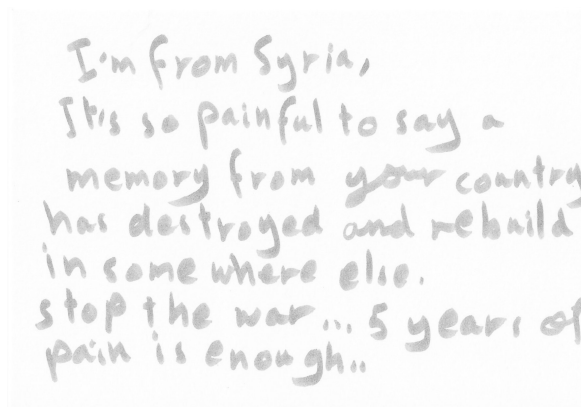 I'm from Syria,
It's so painful to say a
memory from your country
has destroyed and rebuild
in some where else.
stop the war... 5 years of
pain is enough..